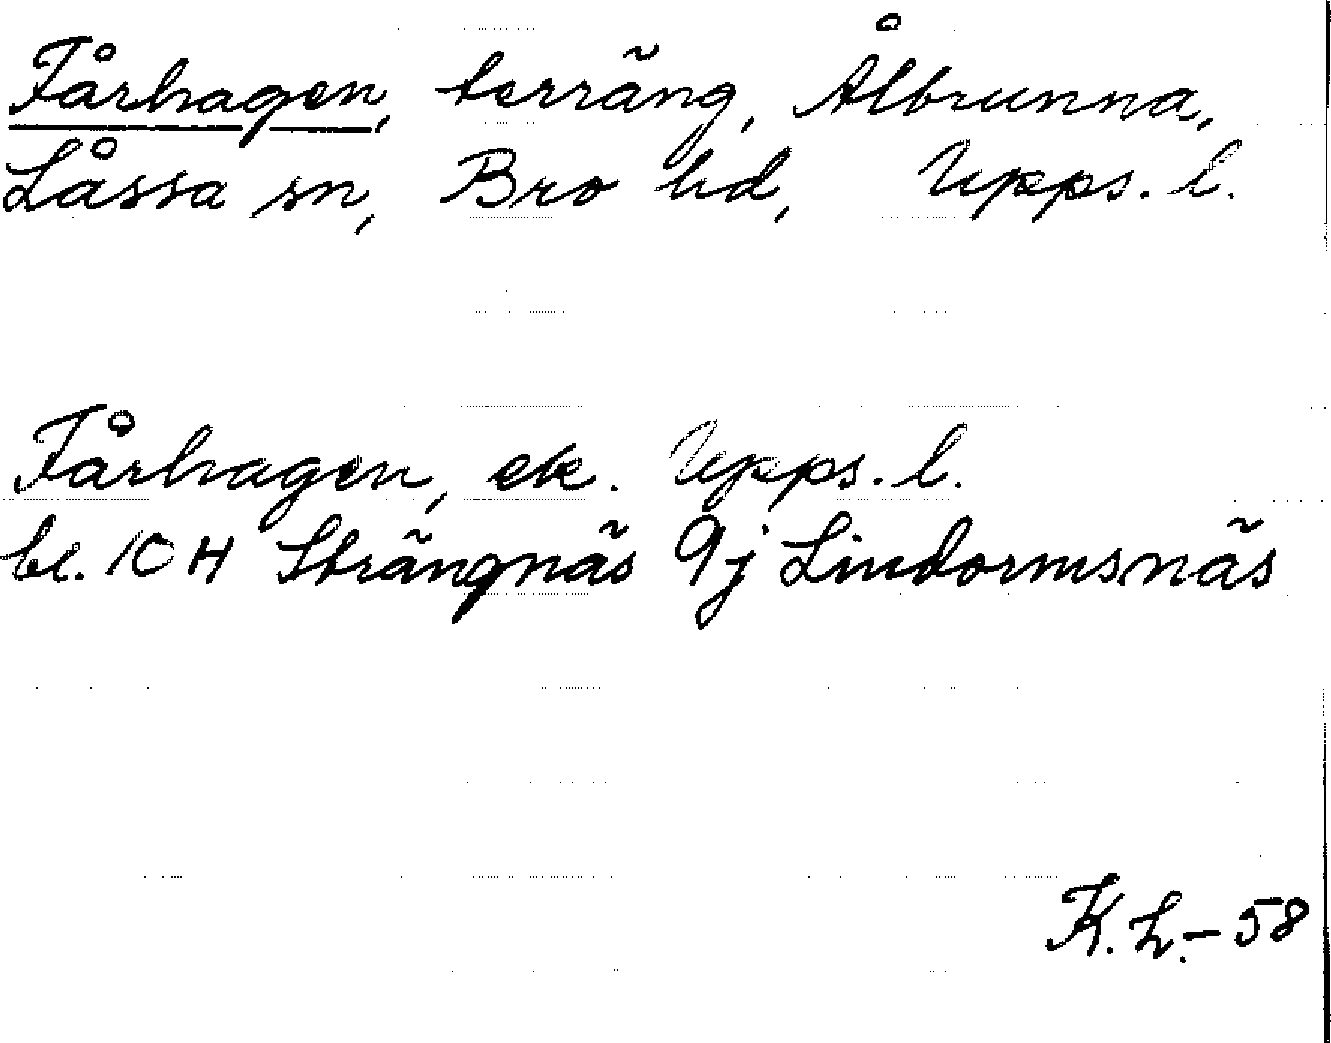 Fårhagen, terräng, Ålbrunna,
Låssa sn, Bro hd, Upps. l.
Fårhagen, ek. Upps. l.
bl. 10 H Strängnäs 9j Lindormsnäs
K. L. - 58